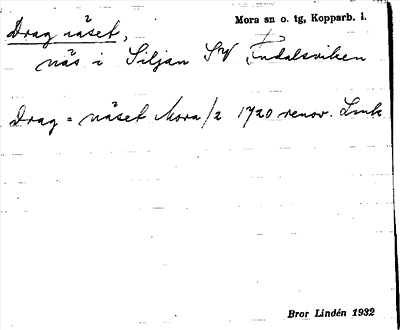 Drag näset,
Mora sn o. tg, Kopparb. l.
näs i Siljan SV Findalsviken
Drag = näset Mora/2 1720 renov. Lmk
Bror Lindén 1932